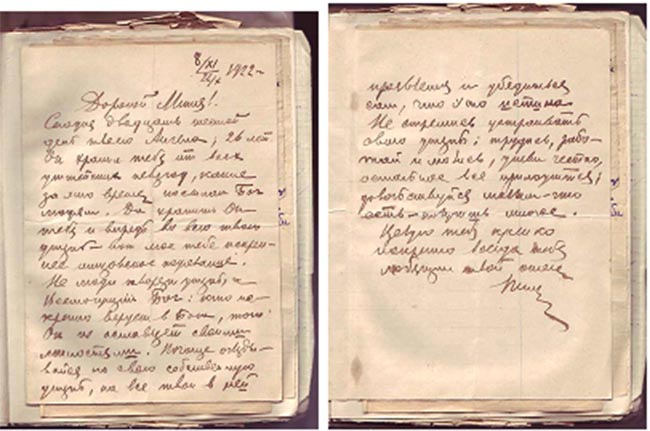 8/XI
26/X 1922 г.
Дорогой Митя!
Сегодня двадцать шестой
день твоего Ангела; 26 лет
Он хранил тебя от всех
житейских невзгод, какие
за это время посылал Бог
людям. Да хранит Он
тебя и впредь во всю твою
жизнь – вот мое тебе искрен-
нее отцовское пожелание.
Не люди творят жизнь, а
Всемогущий Бог: кто не-
крепко верует в Бога, того
Он не оставляет своими
милостями. Почаще огляды-
вайся на свою собственную
жизнь, на все твои в ней
и убедишься
сам, что это истина.
Не стремись устраивать
свою жизнь; трудись, рабо-
тай и молись, живи честно,
остальное все приложится;
довольствуйся малым – это
есть – многое.
Целую тебя крепко
искренно всегда тебя
любящий твой отец